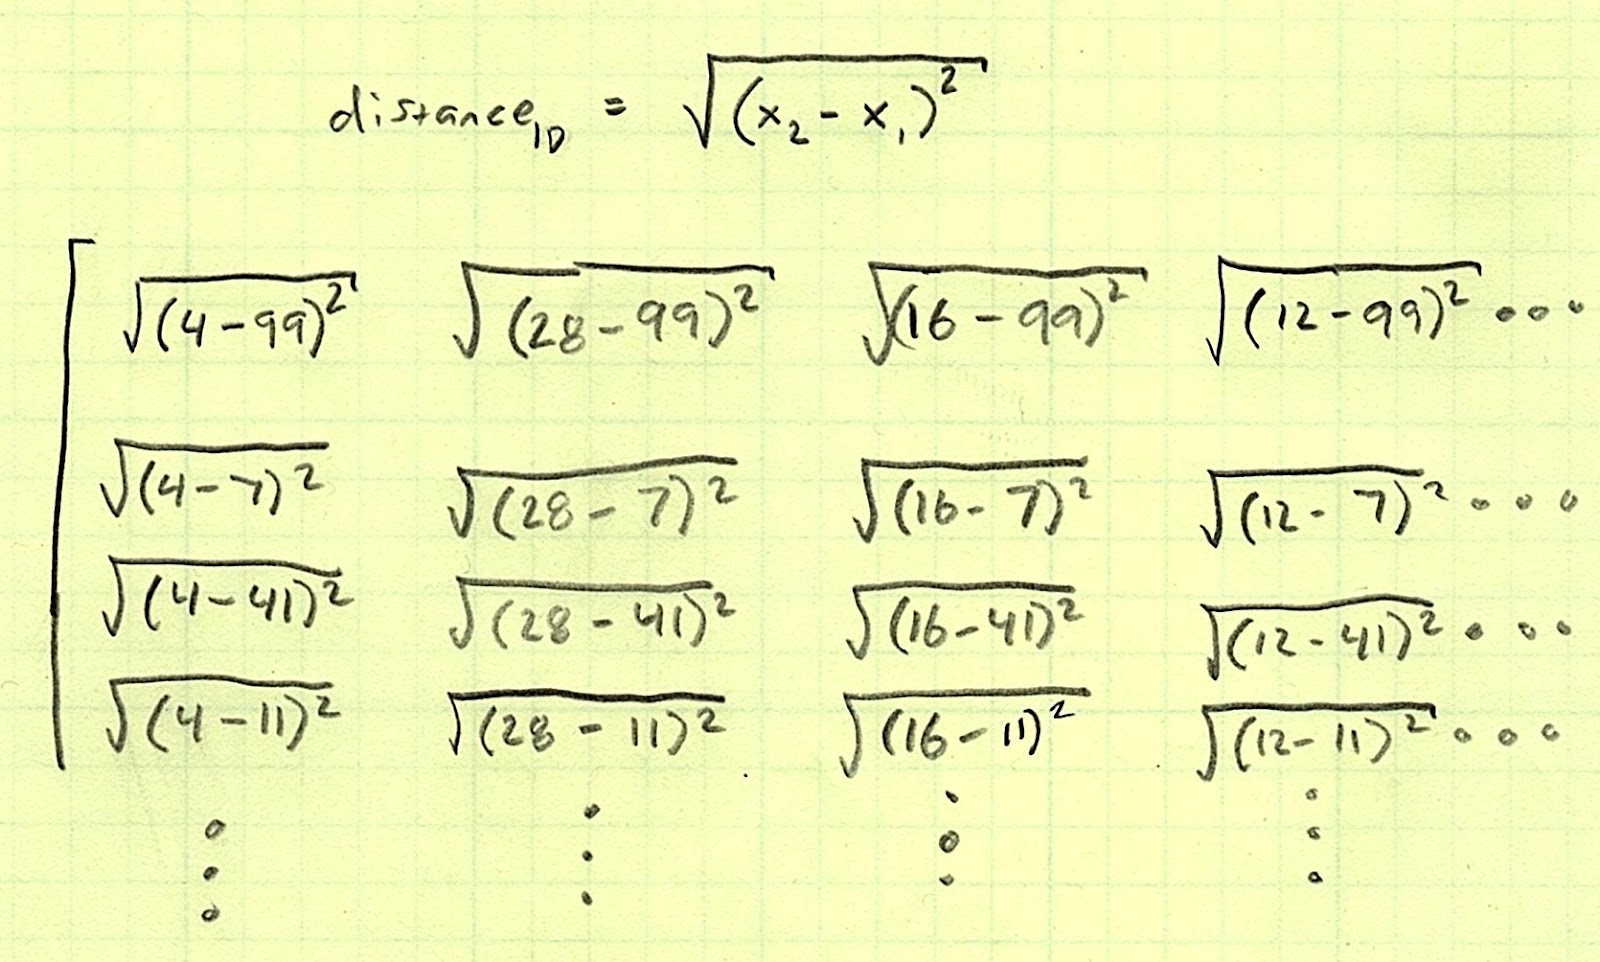 distance₁D = √(x₂ - x₁)²
√(4-99)² √(28-99)² √(16-99)² √(12-99)² ...
√(4-7)² √(28-7)² √(16-7)² √(12-7)² ...
√(4-41)² √(28-41)² √(16-41)² √(12-41)² ...
√(4-11)² √(28-11)² √(16-11)² √(12-11)² ...
⋮ ⋮ ⋮ ⋮